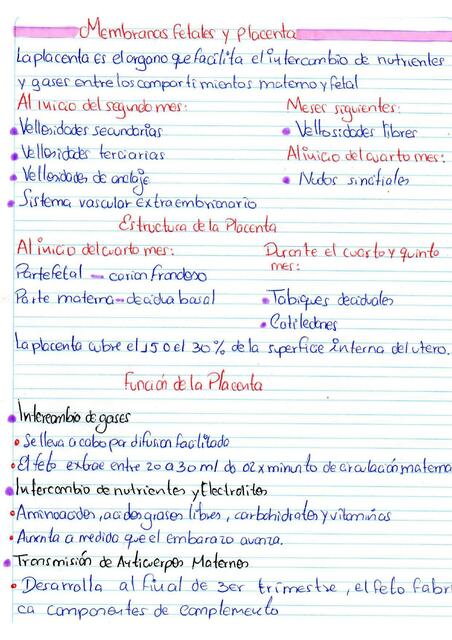 Membranas fetales y placenta
La placenta es el organo que facilita el intercambio de nutrientes
y gases entre los compartimientos materno y fetal
Al inicio del segundo mes:
Vellosidades secundarias
Vellosidades terciarias
Vellosidades de anclaje
Sistema vascular extraembrionario
Meses siguientes:
Vellosidades libres
Al inicio del cuarto mes:
Nudos sincitiales
Estructura de la Placenta
Al inicio del cuarto mes:
Parte fetal - corion frondoso
Parte materna - decidua basal
Durante el cuarto y quinto
mes:
Tabiques deciduales
Cotiledones
La placenta cubre el 15 o el 30% de la superficie interna del utero.
Función de la Placenta
Intercambio de gases
Se lleva a cabo por difusion facilitada
El feto extrae entre 20 a 30 ml de O2 x minuto de circulación materna
Intercambio de nutrientes y Electrolitos
Aminoacidos, acidos grasos libres, carbohidratos y vitaminas
Aumenta a medida que el embarazo avanza.
Transmisión de Anticuerpos Maternos
Desarrolla al final de 3er trimestre, el feto fabri
ca componentes de complemento